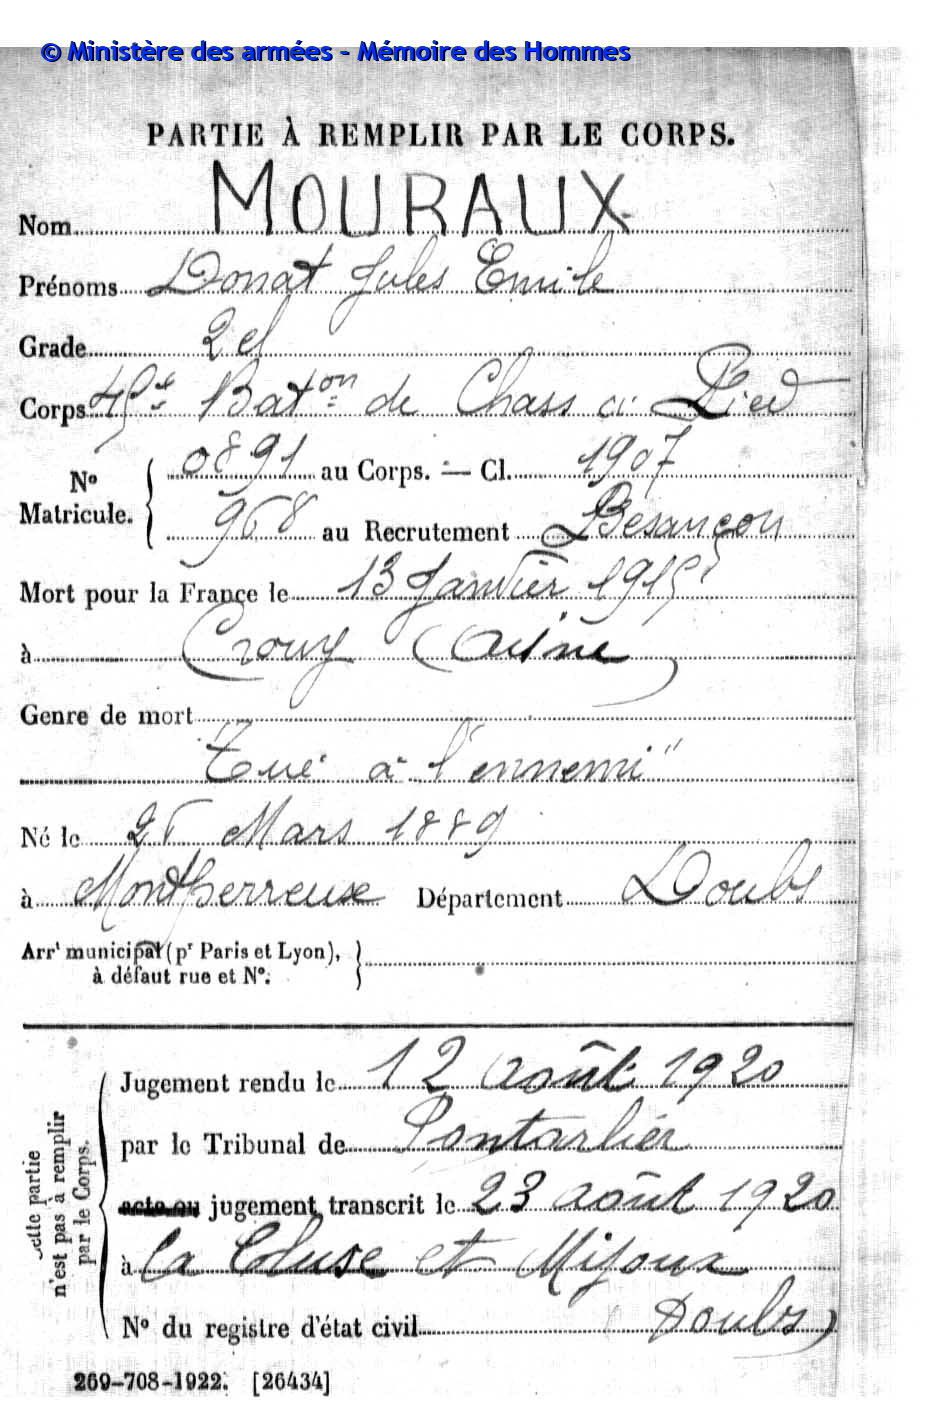 © Ministère des armées - Mémoire des Hommes
PARTIE À REMPLIR PAR LE CORPS.
Nom MOURAUX
Prénoms Donat Jules Emile
Grade 2 cl
Corps 45e Baton de Chass à Pied
No Matricule. 0891 au Corps. — Cl. 1907
968 au Recrutement Besançon
Mort pour la France le 13 Janvier 1915
à Crouy (Aisne)
Genre de mort
"Tué à l'ennemi"
Né le Mars 1889
à Montperreux Département Doubs
Arrt municipal (pr Paris et Lyon),
à défaut rue et No.
Cette partie
n'est pas à remplir
par le Corps.
Jugement rendu le 12 août 1920
par le Tribunal de Pontarlier
acte ou jugement transcrit le 23 août 1920
à La Cluse et Mijoux
No du registre d'état civil (Doubs)
269-708-1922. [26434]